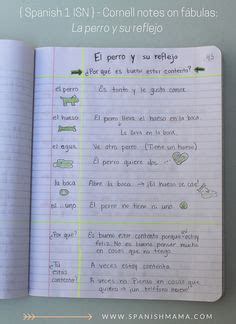 { Spanish 1 ISN } - Cornell notes on fábulas:
La perro y su reflejo
El perro y su reflejo
¿Por qué es bueno estar contento?
el perro
Es tonto y le gusta comer
el hueso
El perro lleva el hueso en la boca
Lo lleva en la boca.
el agua
Ve otro perro. (Tiene un hueso)
El perro quiere dos
la boca
Abre la boca → ¡El hueso se cae!
El perro no tiene ni uno
¿Por qué?
Es bueno estar contento porque estoy
feliz. No es bueno pensar mucho
en cosas que no tengo.
¿Tú
estás
contento?
A veces estoy contenta.
A veces no. Pienso en cosas que
quiero → ¡un teléfono nuevo!
WWW.SPANISHMAMA.COM